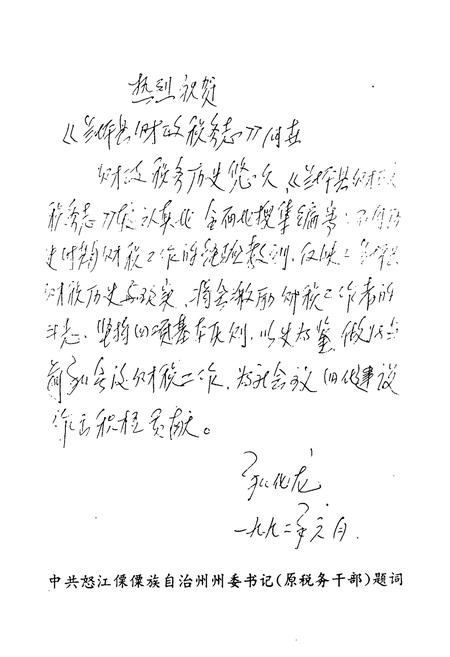 热烈祝贺
《兰坪县财政税务志》付世
财政税务历史悠久,《兰坪县财政
税务志》较认真地全面地搜集编写
史时期财税工作的经验教训,反映兰坪县
财税历史与现实,将会激励财税工作者的
斗志,坚持四项基本原则,以史为鉴,做好当
前和今后财税工作,为社会主义四化建设
作出积极贡献。
一九九二年元月
中共怒江傈僳族自治州州委书记(原税务干部)题词